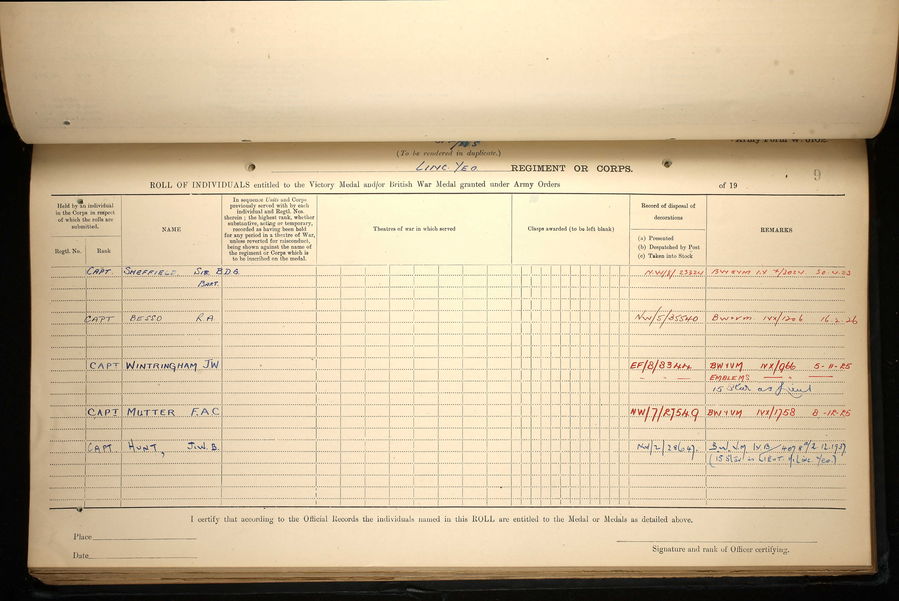 (To be rendered in duplicate.)
LINC. YEO. REGIMENT OR CORPS.
9
ROLL OF INDIVIDUALS entitled to the Victory Medal and/or British War Medal granted under Army Orders of 19
Held by an individual in the Corps in respect of which the rolls are submitted.
Regtl. No.
Rank
NAME
In sequence Units and Corps previously served with by each individual and Regtl. Nos. therein; the highest rank, whether substantive, acting or temporary, recorded as having been held for any period in a theatre of War, unless reverted for misconduct, being shown against the name of the regiment or Corps which is to be inscribed on the medal.
Theatres of war in which served
Clasps awarded (to be left blank)
Record of disposal of decorations
(a) Presented
(b) Despatched by Post
(c) Taken into Stock
REMARKS
CAPT. SHEFFIELD. SIR B.D.G. N.W/8/23324 BW&VM
BART.
CAPT BESSO R A NW/5/35540 BW&VM IVX/1206
CAPT WINTRINGHAM JW EF/8/8344 BW&VM IVX/966 5-11-25
EMBLEMS
15 Star as
CAPT MUTTER F.A.C NW/7/27549 BW&VM IVX/1758 8-12-25
CAPT. HUNT, J.W.B. NW/2/28647. B.W. V.M
(15 Star as LIEUT Linc. Yeo.)
I certify that according to the Official Records the individuals named in this ROLL are entitled to the Medal or Medals as detailed above.
Place
Date
Signature and rank of Officer certifying.